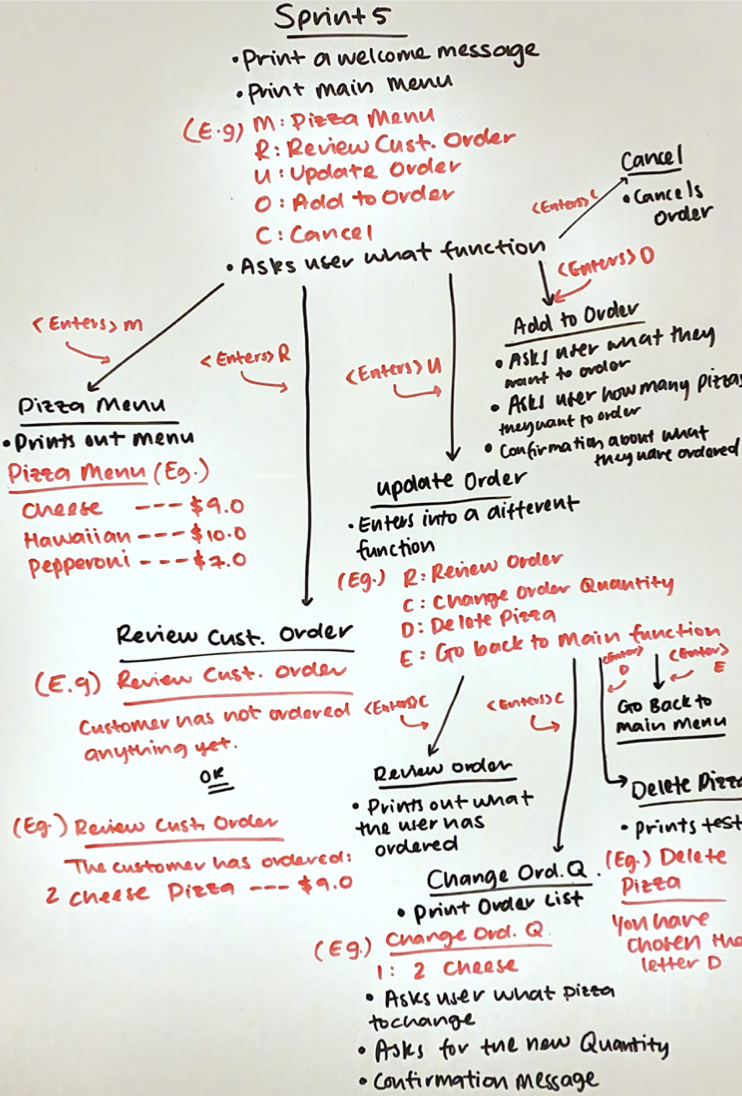 Sprint 5
• Print a welcome message
• Print main menu
(E.g) M: Pizza Menu
R: Review Cust. Order
U: Update Order
O: Add to Order
C: Cancel
• Asks user what function
<Enters> C
Cancel
• Cancels
Order
<Enters> O
Add to Order
• Asks user what they
want to order
• Asks user how many pizzas
they want to order
• Confirmation about what
they have ordered
<Enters> M
Pizza Menu
• Prints out menu
Pizza Menu (Eg.)
Cheese --- $9.0
Hawaiian --- $10.0
Pepperoni --- $7.0
<Enters> R
Review Cust. Order
(E.g) Review Cust. Order
Customer has not ordered
anything yet.
OR
(Eg.) Review Cust. Order
The customer has ordered:
2 Cheese Pizza --- $9.0
<Enters> U
Update Order
• Enters into a different
function
(Eg.) R: Review Order
C: Change Order Quantity
D: Delete Pizza
E: Go back to main function
<Enters> C
Review order
• Prints out what
the user has
ordered
<Enters> C
Change Ord. Q.
• Print Order List
(Eg.) Change Ord. Q
1: 2 Cheese
• Asks user what pizza
to change
• Asks for the new Quantity
• Confirmation message
<Enter>
D
Delete Pizza
• prints test
(Eg.) Delete
Pizza
You have
chosen the
letter D
<Enter>
E
Go Back to
main menu